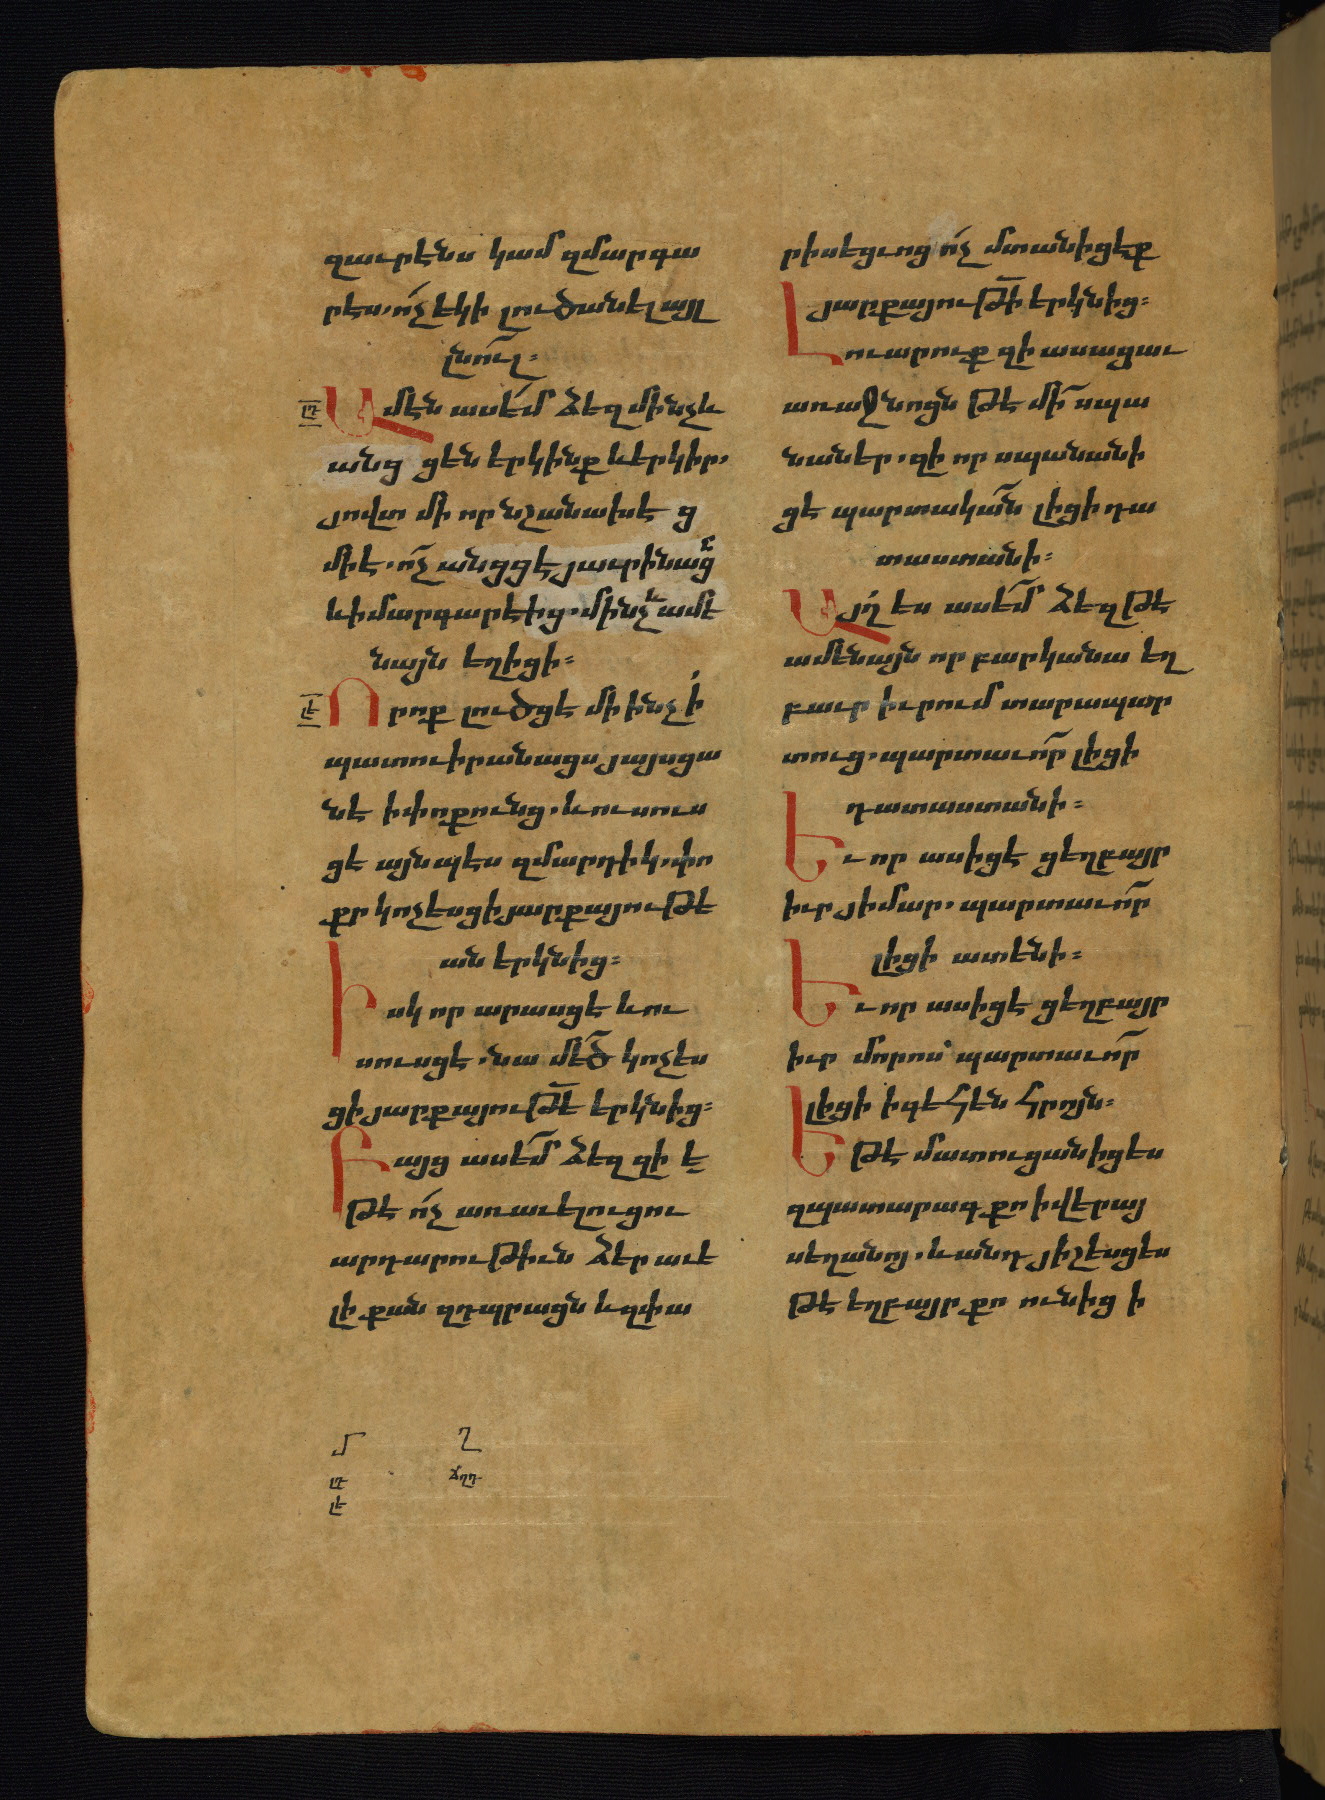 զաւրէնս կամ զմարգա
րէս, ո՛չ եկի լուծանել այլ
լնուլ։
լդ Ամէն ասեմ ձեզ մինչև
անց ցեն երկինք և երկիր,
յովտ մի որ նշանախէ ց
մի է, ո՛չ անցցէ յաւրինաց
և ի մարգարէից, մինչև ամե
նայն եղիցի։
լե Որոք լուծցէ մի ինչ ի
պատուիրանացս յայսցա
նէ ի փոքունց, և ուսուս
ցե այնպէս զմարդիկ, փո
քր կոչեսցի յարքայութե
ան երկնից։
Իսկ որ արասցե և ու
սուսցե, նա մեծ կոչես
ցի յարքայութե երկնից։
Բայց ասեմ ձեզ զի ե
թե ո՛չ առաւելուցու
արդարութիւն ձեր աւե
լի քան զդպրացն և զփա
րիսեցւոց ո՛չ մտանիցէք
յարքայութի երկնից։
Լուարուք զի ասացաւ
առաջնոցն թե մի սպա
նաներ, զի որ սպանանի
ցե պարտական լիցի դա
տաստանի։
Այղ ես ասեմ ձեզ թե
ամենայն որ բարկանա եղ
բաւր իւրում տարապար
տուց, պարտաւոր լիցի
դատաստանի։
Եւ որ ասիցէ ցեղբայր
իւր յիմար, պարտաւոր
լիցի ատենի։
Եւ որ ասիցէ ցեղբայր
իւր մորոս՝ պարտաւոր
լիցի ի գեհեն հրոյն։
Եթե մատուցանիցես
զպատարագ քո ի վերայ
սեղանոյ, և անդ յիշեսցես
թե եղբայր քո ունից ի
մ ղ
լդ ճղդ
լե